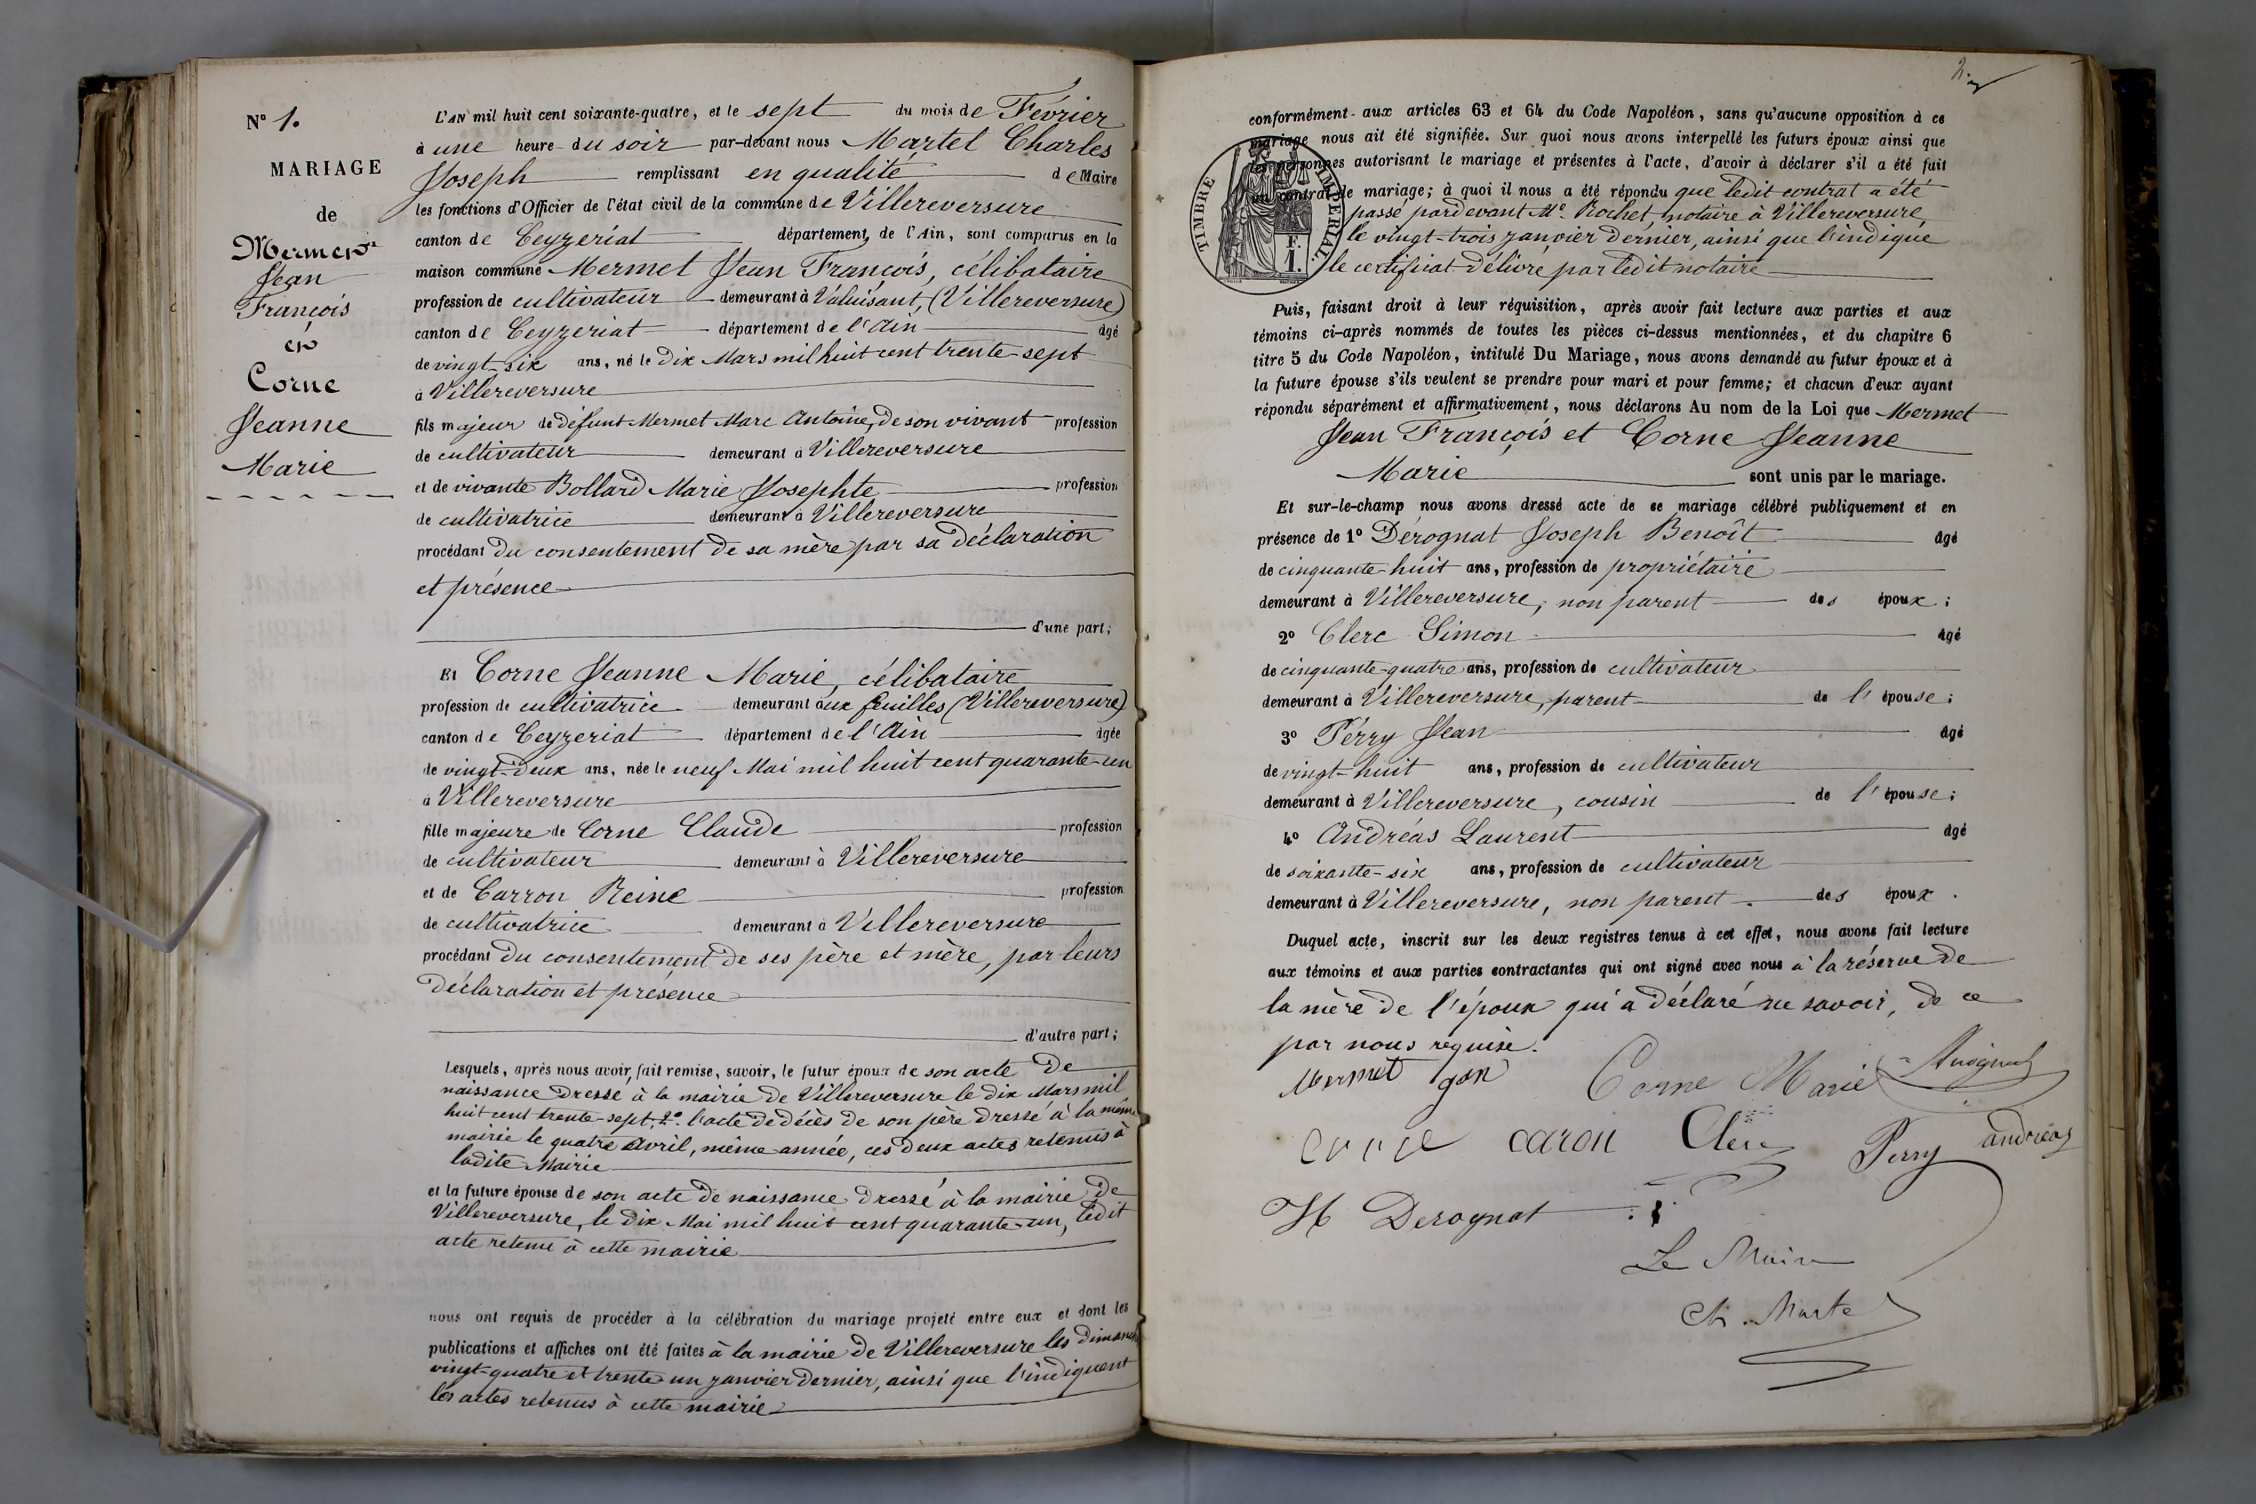 N° 1.
MARIAGE
de
Mermet
Jean
François
et
Corne
Jeanne
Marie
L'AN mil huit cent soixante-quatre, et le sept du mois de Février
à une heure du soir par-devant nous Martel Charles
Joseph remplissant en qualité de Maire
les fonctions d'Officier de l'état civil de la commune de Villereversure
canton de Ceyzeriat département de l'Ain, sont comparus en la
maison commune Mermet Jean François, célibataire
profession de cultivateur demeurant à Valuisant, (Villereversure)
canton de Ceyzeriat département de l'Ain âgé
de vingt-six ans, né le dix Mars mil huit cent trente-sept
à Villereversure
fils majeur de défunt Mermet Marc Antoine, de son vivant profession
de cultivateur demeurant à Villereversure
et de vivante Bollard Marie Josephte profession
de cultivatrice demeurant à Villereversure
procédant du consentement de sa mère par sa déclaration
et présence
d'une part;
Et Corne Jeanne Marie, célibataire
profession de cultivatrice demeurant aux feuilles (Villereversure)
canton de Ceyzeriat département de l'Ain âgée
de vingt-deux ans, née le neuf Mai mil huit cent quarante-un
à Villereversure
fille majeure de Corne Claude profession
de cultivateur demeurant à Villereversure
et de Carron Reine profession
de cultivatrice demeurant à Villereversure
procédant du consentement de ses père et mère, par leurs
déclaration et présence
d'autre part;
Lesquels, après nous avoir fait remise, savoir, le futur époux de son acte de
naissance dressé à la mairie de Villereversure le dix Mars mil
huit cent trente-sept, 2° l'acte de décès de son père dressé à la même
mairie le quatre Avril, même année, ces deux actes retenus à
ladite Mairie
et la future épouse de son acte de naissance dressé à la mairie de
Villereversure, le dix Mai mil huit cent quarante-un, ledit
acte retenu à cette mairie
nous ont requis de procéder à la célébration du mariage projeté entre eux et dont les
publications et affiches ont été faites à la mairie de Villereversure les dimanches
vingt-quatre et trente un janvier dernier, ainsi que l'indiquent
les actes retenus à cette mairie
2.
conformément aux articles 63 et 64 du Code Napoléon, sans qu'aucune opposition à ce
mariage nous ait été signifiée. Sur quoi nous avons interpellé les futurs époux ainsi que
les personnes autorisant le mariage et présentes à l'acte, d'avoir à déclarer s'il a été fait
un contrat de mariage; à quoi il nous a été répondu que ledit contrat a été
passé pardevant Me. Rochet, notaire à Villereversure,
le vingt-trois janvier dernier, ainsi que l'indique
le certificat délivré par ledit notaire
TIMBRE IMPÉRIAL.
F.
I.
Puis, faisant droit à leur réquisition, après avoir fait lecture aux parties et aux
témoins ci-après nommés de toutes les pièces ci-dessus mentionnées, et du chapitre 6
titre 5 du Code Napoléon, intitulé Du Mariage, nous avons demandé au futur époux et à
la future épouse s'ils veulent se prendre pour mari et pour femme; et chacun d'eux ayant
répondu séparément et affirmativement, nous déclarons Au nom de la Loi que Mermet
Jean François et Corne Jeanne
Marie sont unis par le mariage.
Et sur-le-champ nous avons dressé acte de ce mariage célébré publiquement et en
présence de 1° Dérognat Joseph Benoît âgé
de cinquante-huit ans, profession de propriétaire
demeurant à Villereversure, non parent des époux;
2° Clerc Simon âgé
de cinquante-quatre ans, profession de cultivateur
demeurant à Villereversure, parent de l'épouse;
3° Pérry Jean âgé
de vingt-huit ans, profession de cultivateur
demeurant à Villereversure, cousin de l'épouse;
4° Andréas Laurent âgé
de soixante-six ans, profession de cultivateur
demeurant à Villereversure, non parent des époux.
Duquel acte, inscrit sur les deux registres tenus à cet effet, nous avons fait lecture
aux témoins et aux parties contractantes qui ont signé avec nous à la réserve de
la mère de l'époux qui a déclaré ne savoir, de ce
par nous requise.
Mermet Corne Marie
caron Clerc Perry andréas
Derognat
Le Maire
Ch. Martel